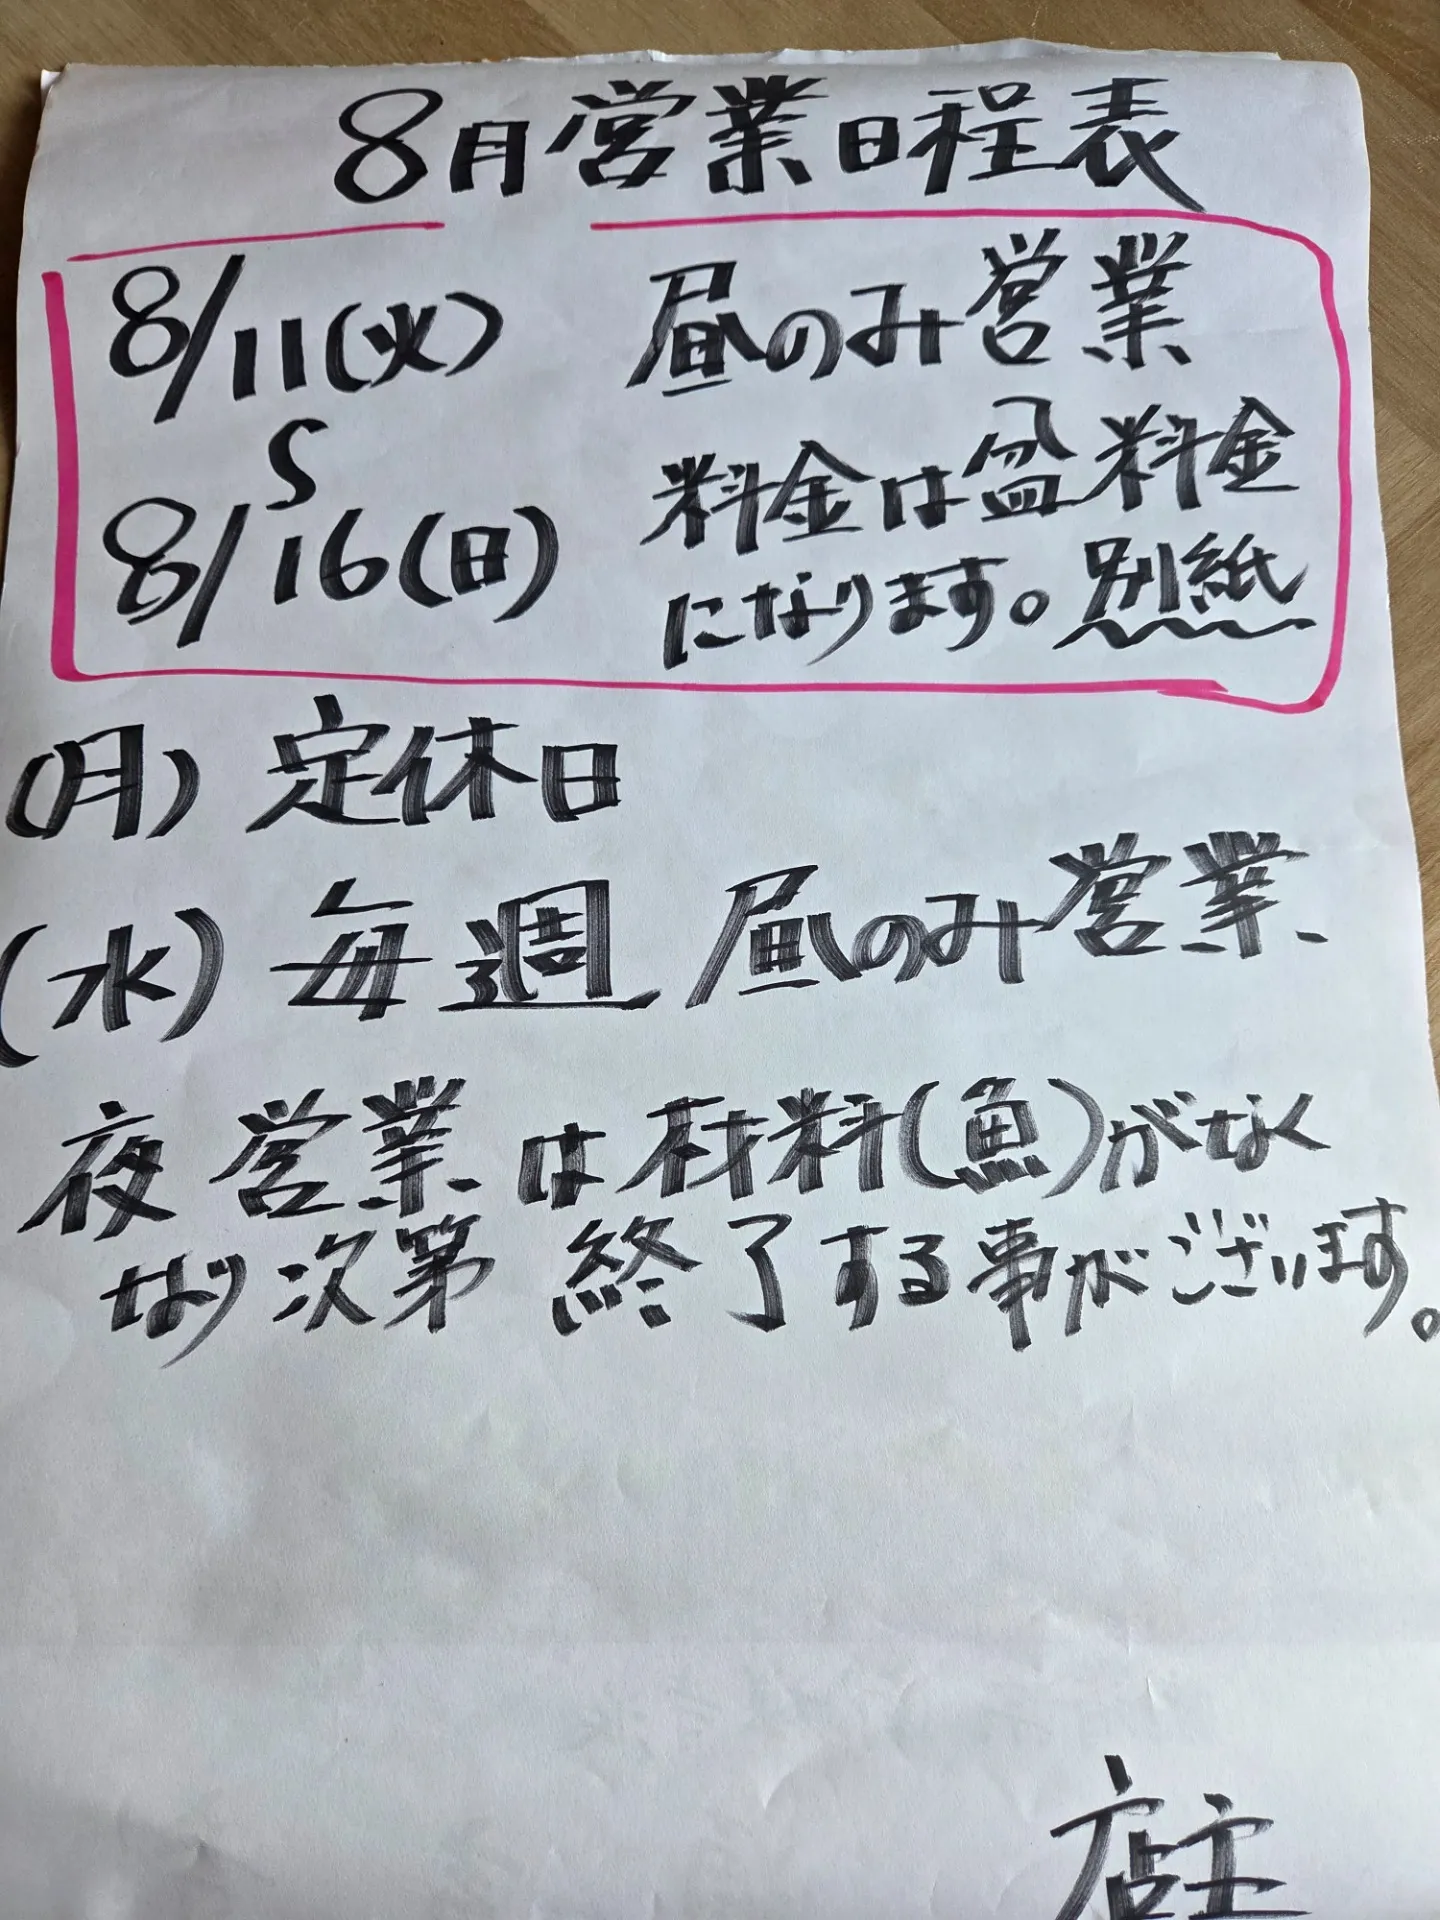 8月営業日程表
8/11(火) 昼のみ営業
〜
8/16(日) 料金は盆料金
になります。別紙
(月) 定休日
(水) 毎週 昼のみ営業
夜営業は材料(魚)がなく
なり次第 終了する事がございます。
店主